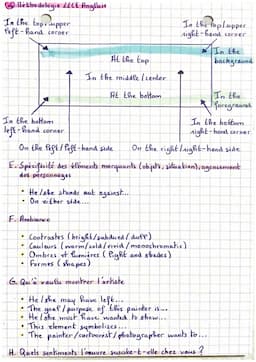 Méthodologie LLCE Anglais
In the top/upper
left-hand corner
In the top/upper
right-hand corner
At the top
In the
background
In the middle/center
At the bottom
In the
foreground
In the bottom
left-hand corner
In the bottom
right-hand corner
On the left/left-hand side
On the right/right-hand side
E. Spécificité des éléments marquants (objets, situation), agencement
des personnages
• He/she stands out against...
• On either side...
F. Ambiance
• Contrastes (bright/subdued/dull)
• Couleurs (warm/cold/vivid/monochromatic)
• Ombres et lumières (light and shades)
• Formes (shapes)
G. Qu'a voulu montrer l'artiste
• He/she may have left...
• The goal/purpose of this painter is...
• He/she must have wanted to show...
• This element symbolizes...
• The painter/cartoonist/photographer wants to...
H. Quels sentiments l'œuvre suscite-t-elle chez vous ?